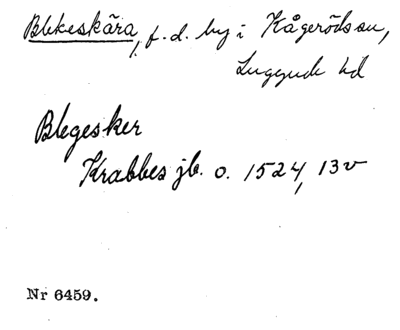 Blekeskära, f.d. by i Kågeröds sn,
Luggude hd
Blegesker
Krabbes jb. o. 1524, 13v
Nr 6459.